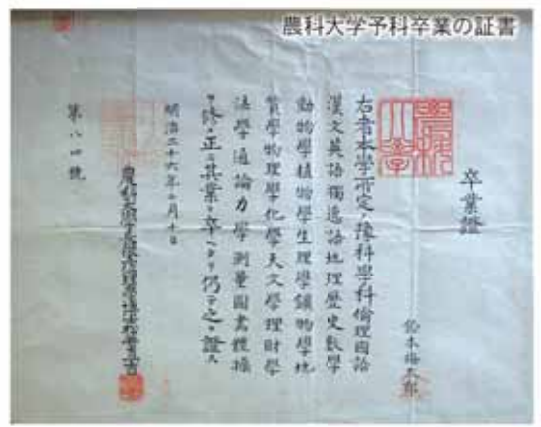 農科大学予科卒業の証書
卒業證
鈴木梅太郎
右者本學所定ノ豫科學科倫理國語
漢文英語獨逸語地理歴史数學
動物學植物學生理學鑛物學地
質學物理學化學天文學理財學
法學通論力學測量圖畫體操
ヲ修メ正ニ其業ヲ卒ヘタリ仍テ之ヲ證ス
明治二十六年七月十日
第八四號